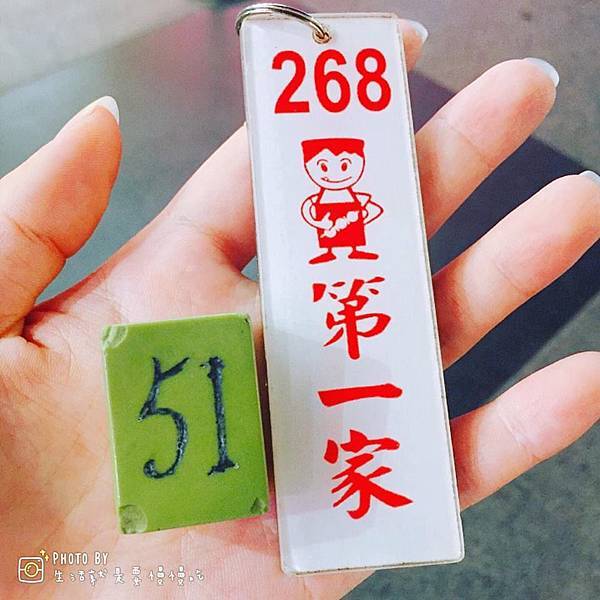 268
第一家
51
PHOTO BY
生活就是要慢慢吃